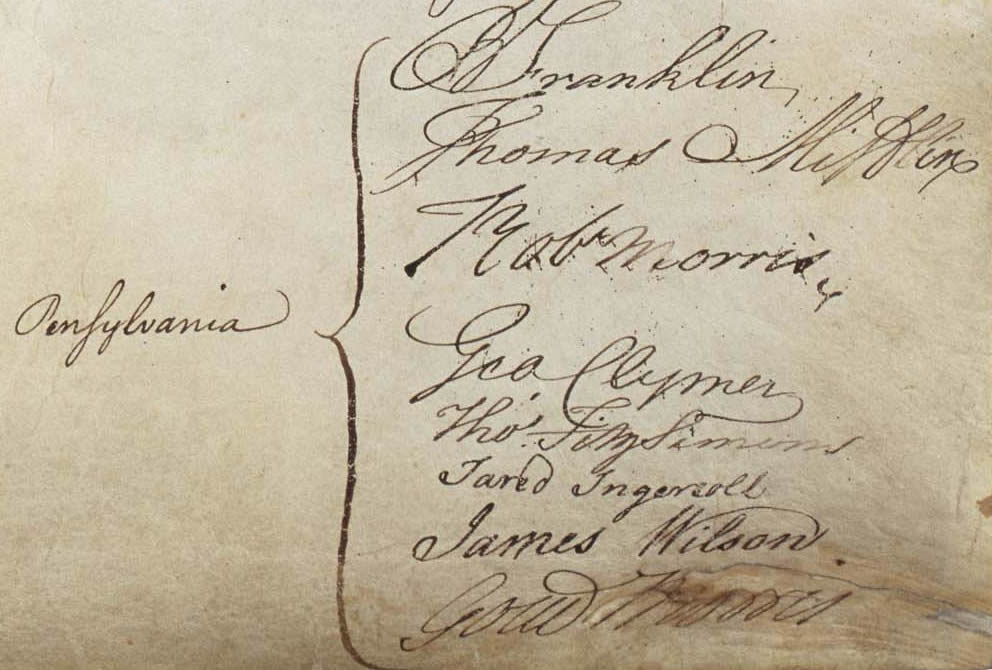 B Franklin
Thomas Mifflin
Robt Morris
Pensylvania
Geo Clymer
Thos FitzSimons
Jared Ingersoll
James Wilson
Gouv Morris